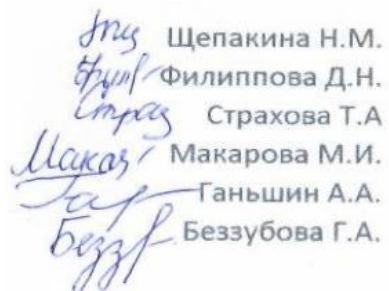 Щепакина Н.М.
Филиппова Д.Н.
Страхова Т.А
Макарова М.И.
Ганьшин А.А.
Беззубова Г.А.